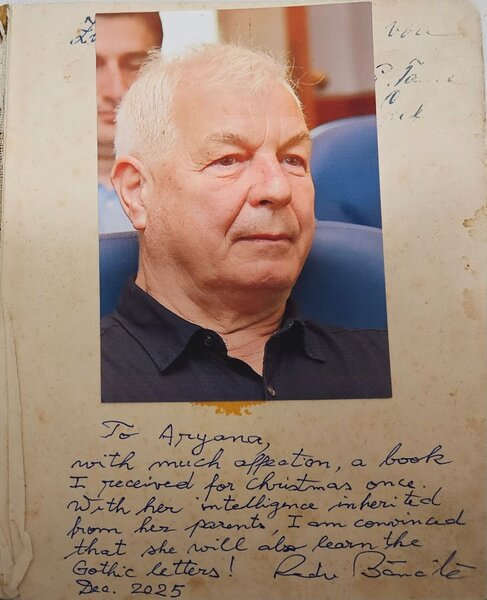 von
To Aryana,
with much affection, a book
I received for Christmas once.
With her intelligence inherited
from her parents, I am convinced
that she will also learn the
Gothic letters!
Dec. 2025